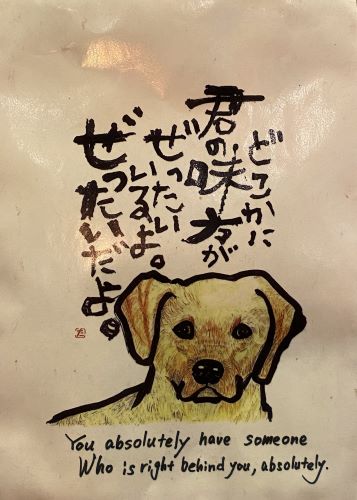 どこかに
君の味方が
ぜったい
いるよ。
ぜったいだよ。
You absolutely have someone
Who is right behind you, absolutely.